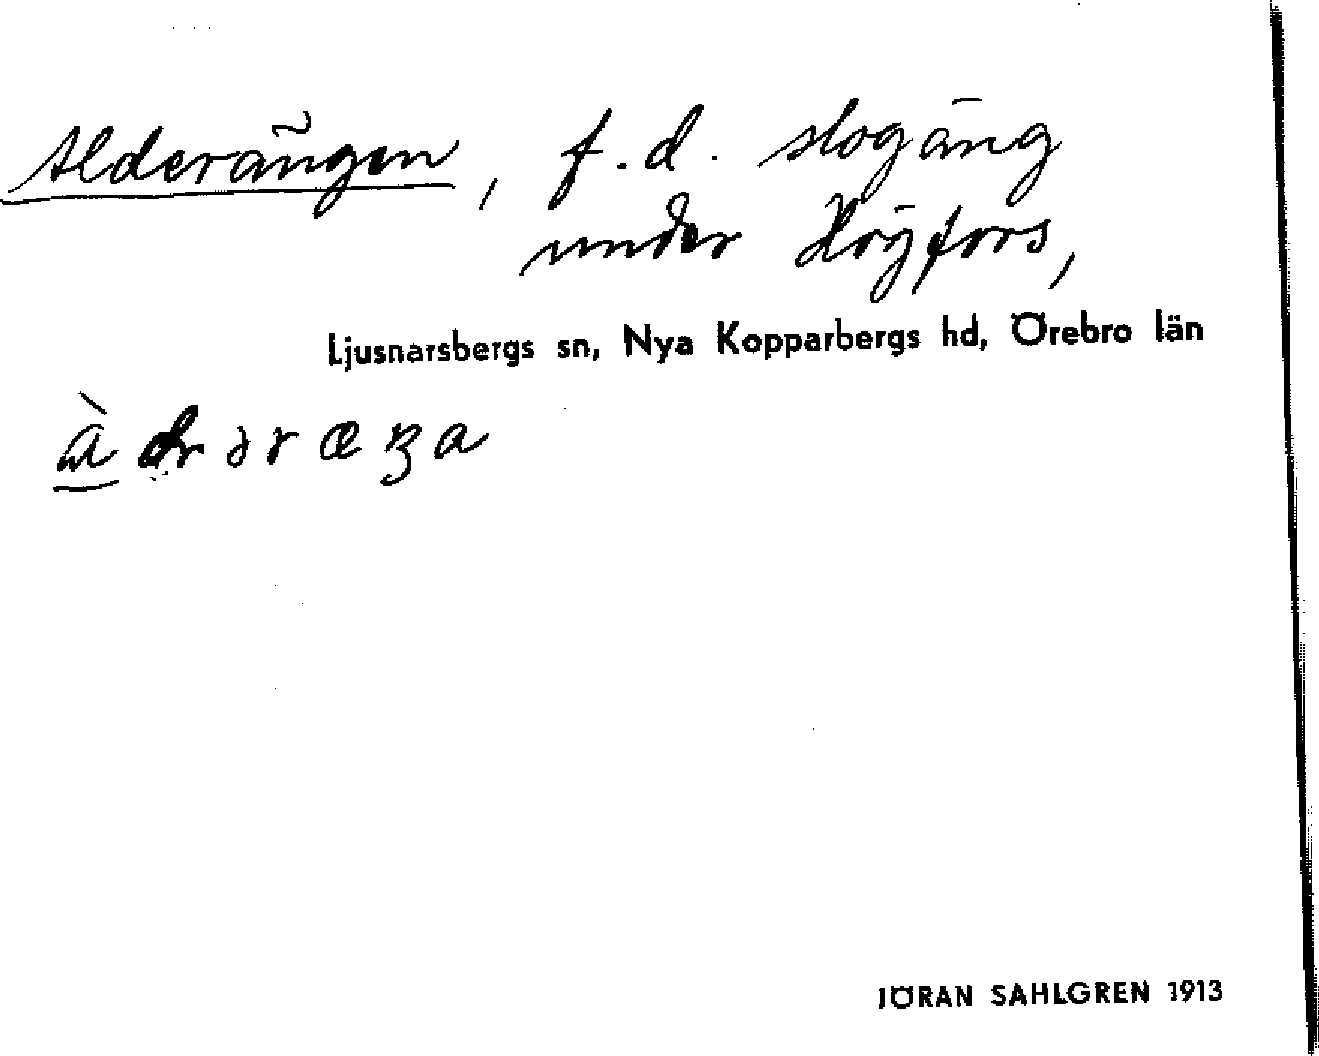 Alderängen, f.d. slogäng
under Högfors,
Ljusnarsbergs sn, Nya Kopparbergs hd, Örebro län
JÖRAN SAHLGREN 1913